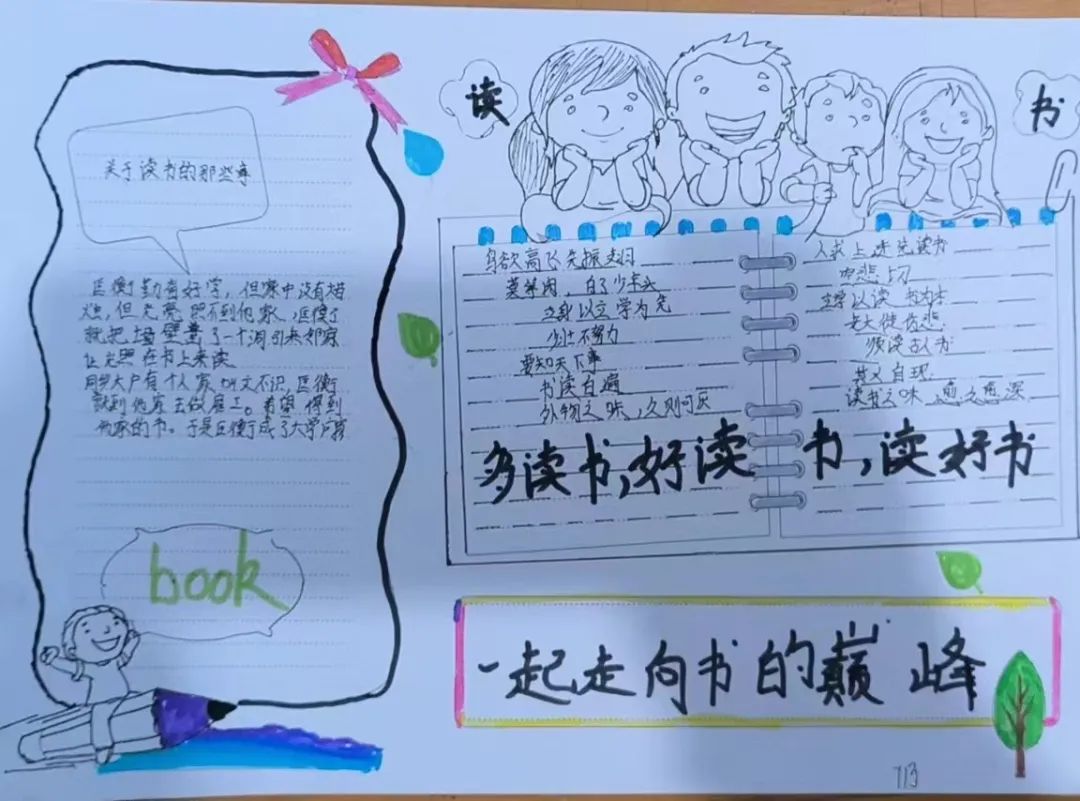 读书
关于读书的那些事
匡衡勤奋好学，但家中没有蜡
烛，但光亮照不到他家，匡衡了
就把墙壁凿了一个洞引来邻家
让光照在书上来读
同乡大户有个人家叫文不识，匡衡
就到他家去做雇工。希望得到
他家的书。于是匡衡成了大学
book
鸟欲高飞先振翅
莫等闲，白了少年头
立身以立学为先
少壮不努力
要知天下事
书读百遍
外物之味，久则可厌
人求上进先读书
空悲切
立学以读书为本
老大徒伤悲
须读古人书
其义自现
读书之味，愈久愈深
多读书，好读书，读好书
一起走向书的巅峰